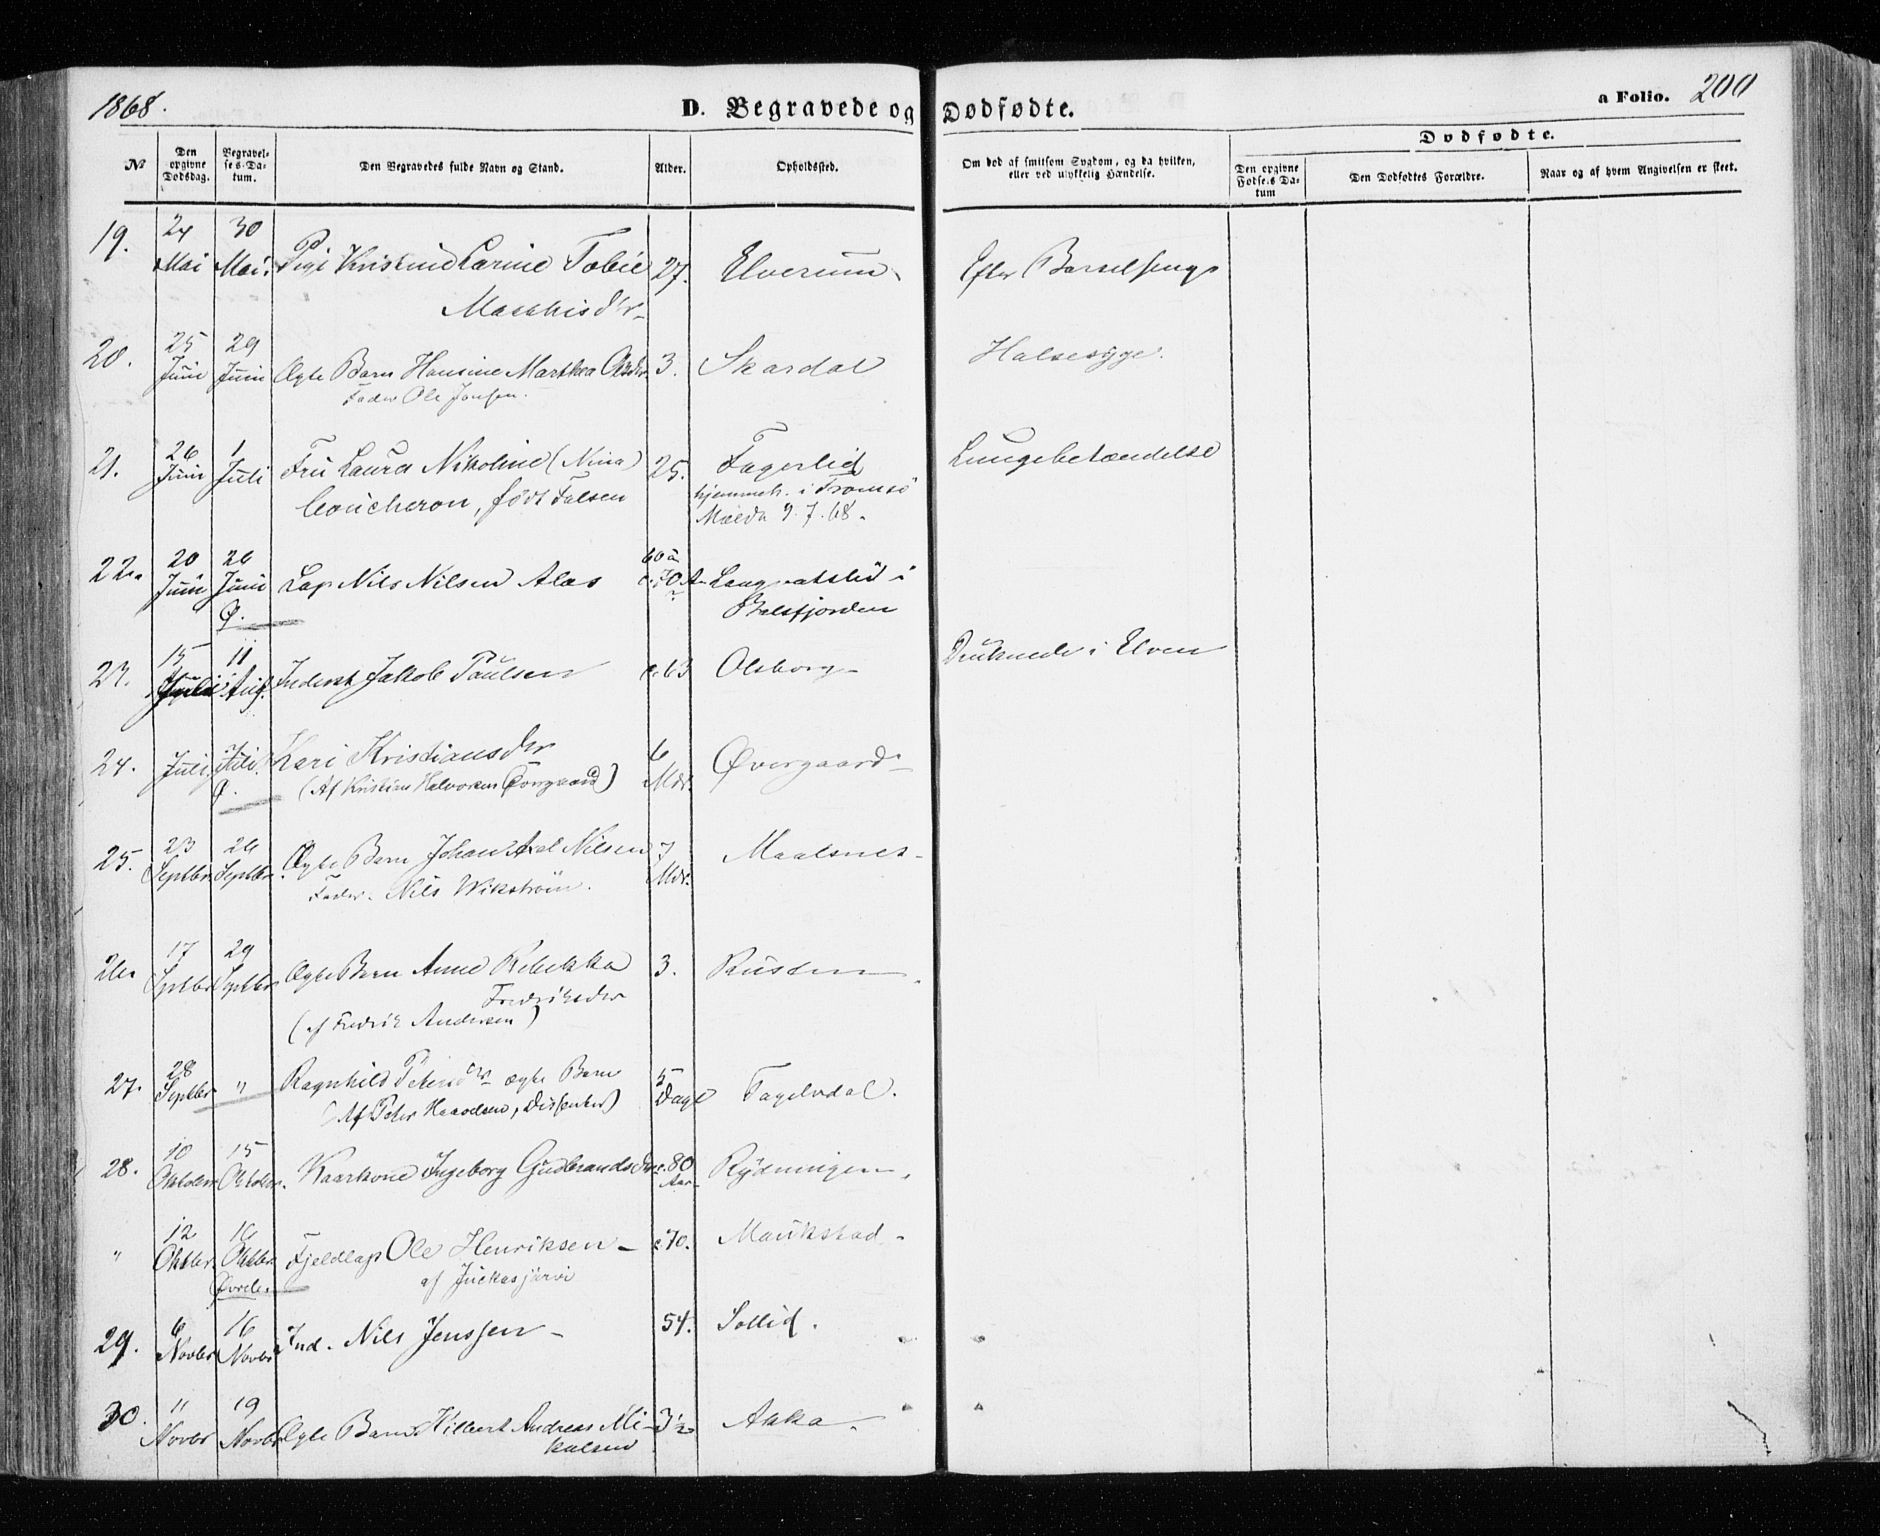 1868.
D. Begravede og Dødfødte.
a Folio. 200
No
Den opgivne Dødsdag.
Begravelses-Datum.
Den Begravedes fulde Navn og Stand.
Alder.
Opholdssted.
Om død af smitsom Sygdom, og da hvilken, eller ved ulykkelig Hændelse.
Dødfødte.
Den opgivne Fødsels Datum
Den Dødfødtes Forældre.
Naar og af hvem Angivelsen er skeet.
19. 24 Mai 30 Mai. Pige Kristine Larine Tobie 27. Elverum Efter Barselseng
Matthisdtr
20. 25 Juni 29 Juni Ægte Barn Hansine Marthea Olsdtr. 3. Skardal Halsesyge.
Fader Ole Jonsen.
21. 26 Juni 1 Juli Fru Laura Nikoline (Nina) 25. Fagerlid Lungebetændelse
Coucheron, født Falsen hjemmeh. i Tromsø
Mældt 9.7.68.
22. 20 Juni 26 Juni Ø. Lap Nils Nilsen Alas 60 à 70 A i
Balsfjorden
23. 15 Juli 11 Aug. Inderst Jakob Paulsen c. 63 Olsborg Druknede i Elven
24. Juli Juli Ø. Kari Kristiansdtr 6 Mdr. Øvergaard
(Af Kristian Halvorsen Øvergaard)
25. 23 Septbr. 26 Septbr. Ægte Barn Johan Axel Nilsen 7 Mdr. Maalsnes
Fader. Nils Wikstrøm.
26. 17 Septbr 29 Septbr Ægte Barn Anne Rebekka 3. Rusten
Fredriksdtr
(af Fredrik Andersen)
27. 28 Septbr " Ragnhild Petersdtr ægte Barn 5 Dage Fagelvdal.
(Af Peter Haavdsen, Dissenter)
28. 10 Oktober 15 Oktober. Kaarkone Ingeborg Gudbrandsdtr c. 80 Aar Rydningen,
" 12 Oktbr. 16 Oktbr. Øvrde. Fjeldlap Ole Henriksen c 70. Maukstad
af Juckasjärvi
29. 6 Novbr 16 Novbr Ind. Nils Jenssen 54. Sollid.
30. 11 Novbr 19 Novbr Ægte Barn Hilbert Andreas Mi- 3 1/2 Akka
kalsen